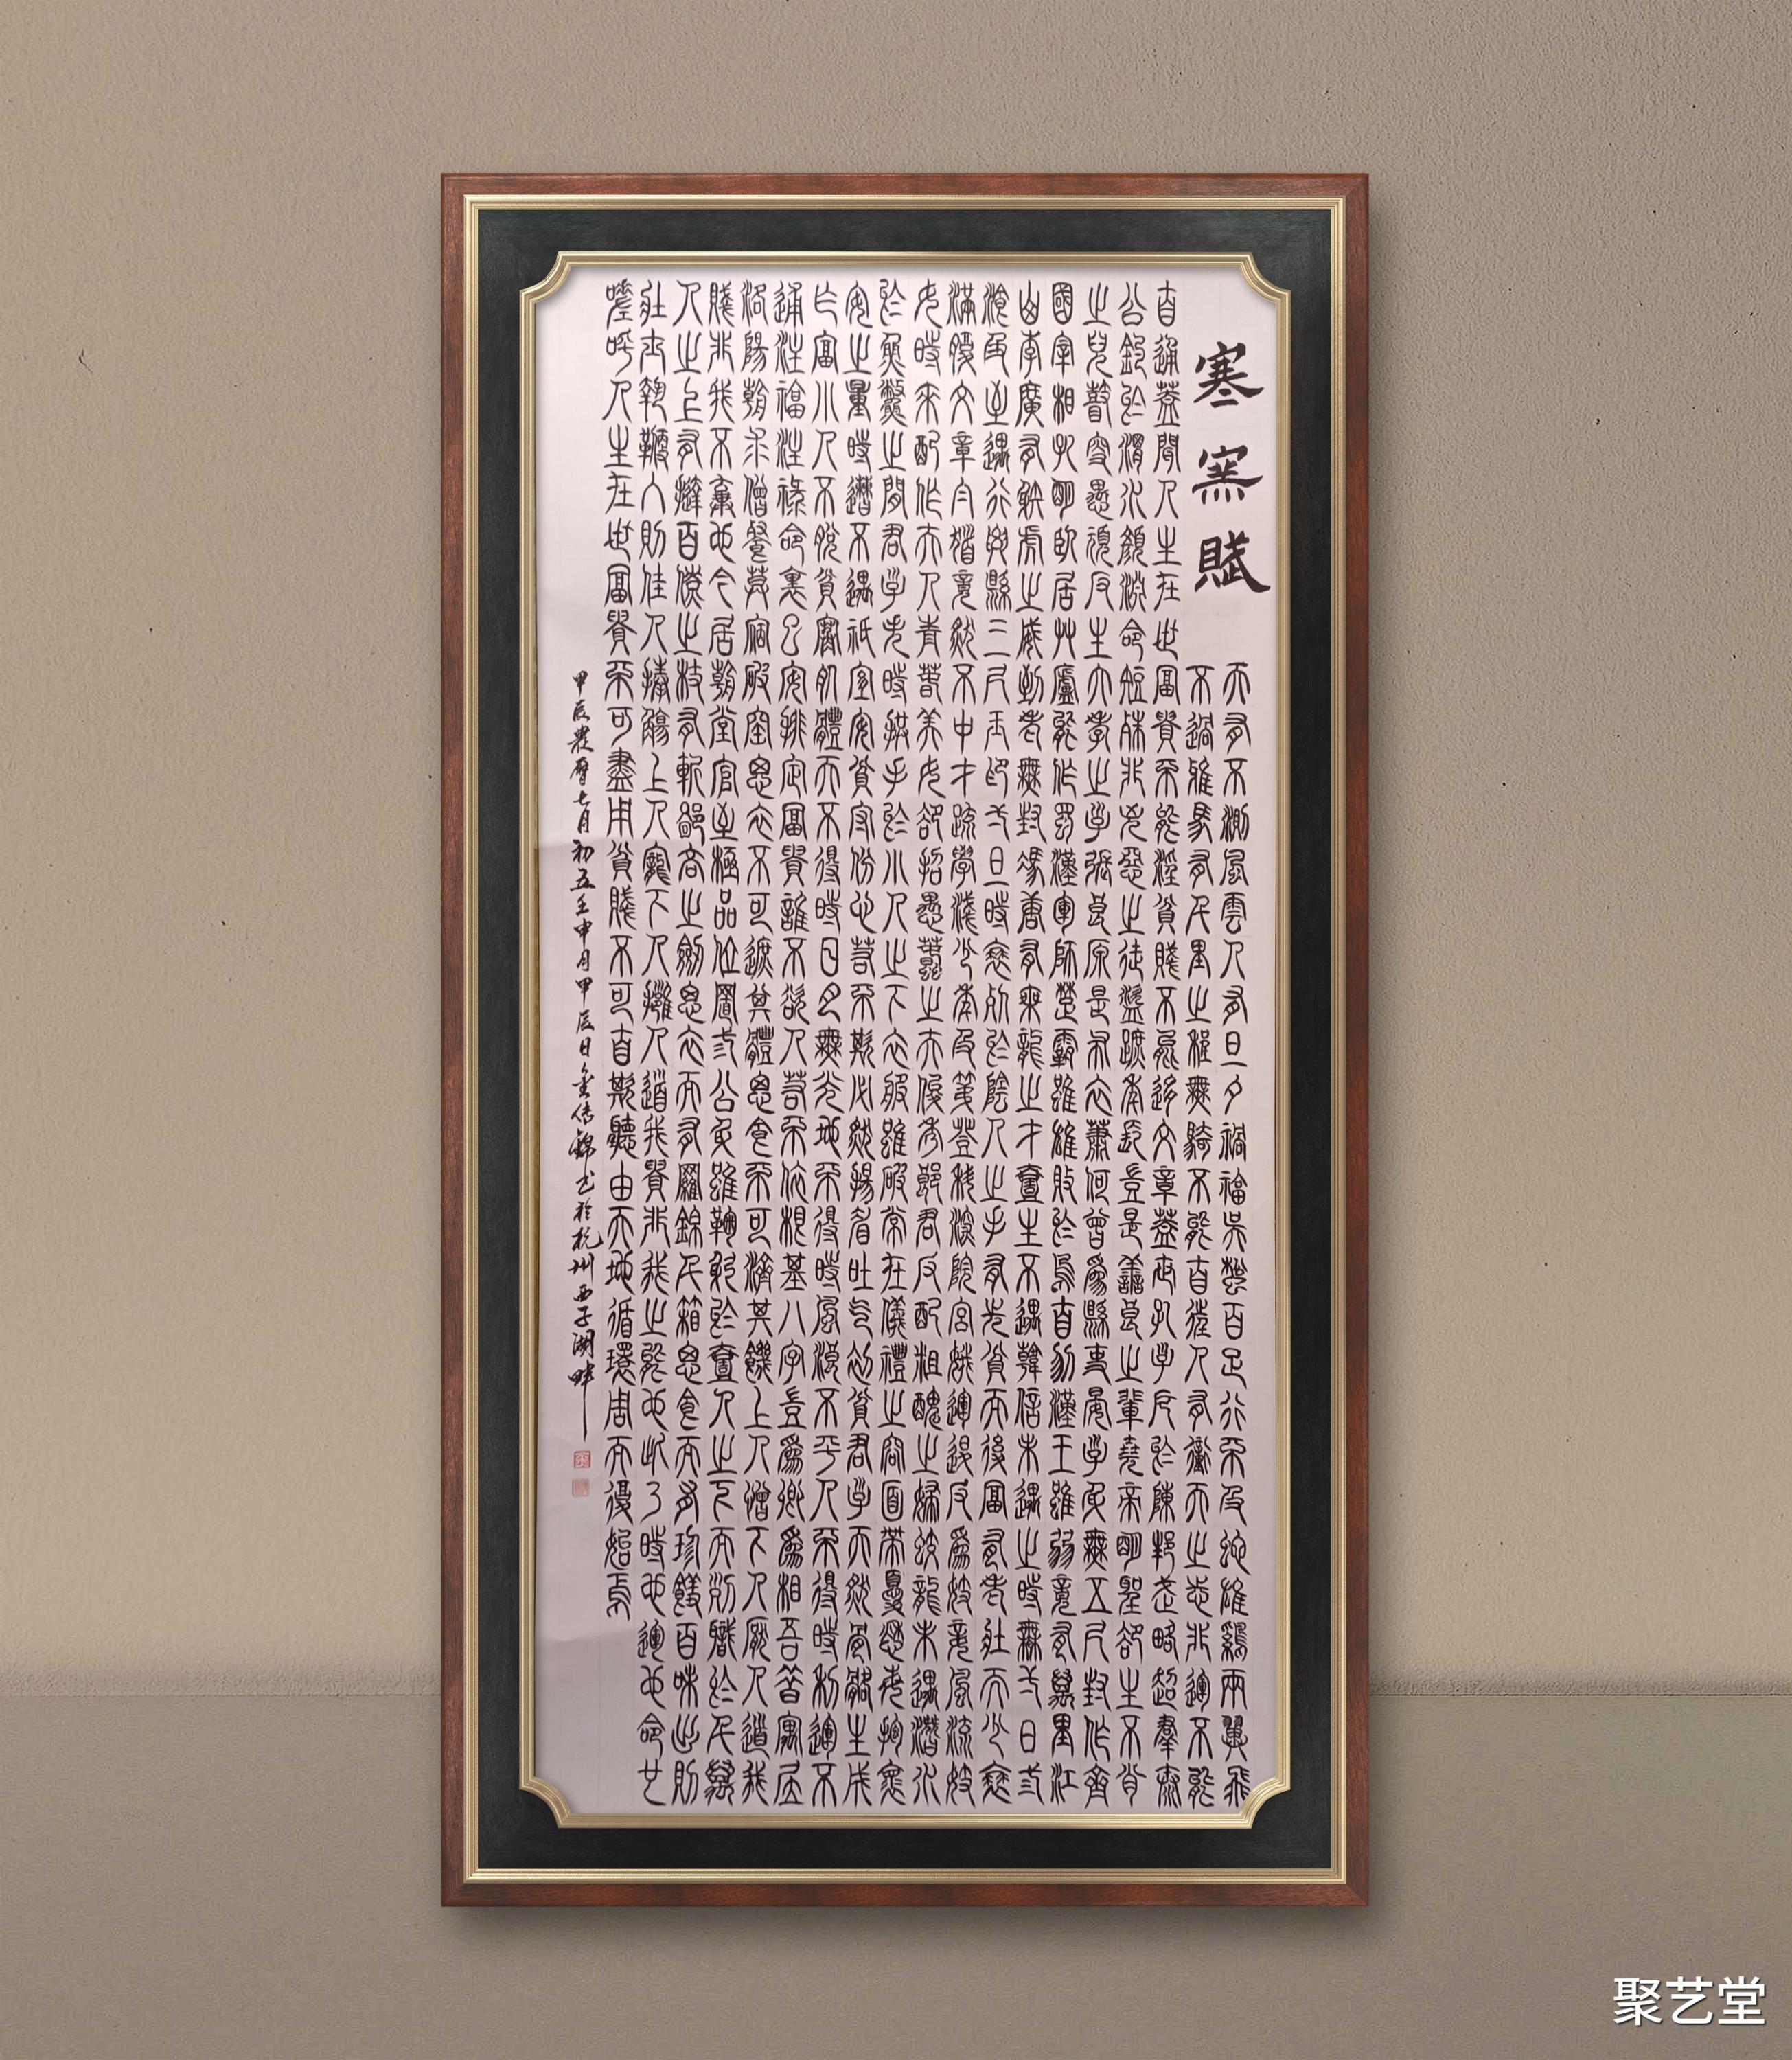 寒窯賦
天有不測風雲人有旦夕禍福吳蚣百足行不及蛇雄鷄兩翼飛
不過雅馬有千里之程無騎不能自往人有衝天之志非運不能
自通蓋聞人生在世富貴不能淫貧賤不能移文章蓋世孔子厄於陳邦武略超羣太
公釣於渭水顏淵命短殊非凶惡之徒盜蹠年長豈是善良之輩堯帝明聖卻生不肖
之兒瞽叟愚頑反生大孝之子張良原是布衣蕭何曾為縣吏晏子身無五尺封作齊
國宰相孔明臥居草廬能作蜀漢軍師楚霸雖雄敗於烏自刎漢王雖弱竟有萬里江
山李廣有射虎之威到老無封馮唐有乘龍之才一生不遇韓信未遇之時無一日三
飡及至遇行腰懸三尺玉印一旦時衰死於陰人之手有先貧而後富有老壯而少衰
滿腹文章白髮竟然不中才疏學淺少年及第登科深院宮娥運退反為妓妾風流妓
女時來配作夫人青春美女卻招愚蠢之夫俊秀郎君反配粗醜之婦蛟龍未遇潛水
於魚鱉之間君子失時拱手於小人之下衣服雖破常在儀禮之容面帶憂愁每抱懷
安之量時遭不遇祇宜安貧守份心若不欺必然揚眉吐氣初貧君子天然骨骼生成
乍富小人不脫貧寒肌體天不得時日月無光地不得時風浪不平人不得時利運不
通注福注祿命裏已安排定富貴誰不欲人若不依根基八字豈為卿為相吾昔寓居
洛陽朝求僧餐暮宿破窯思衣不可遮其體思食不可濟其饑上人憎下人厭人道我
賤非我不棄也今居朝堂官至極品位置三公身雖鞠躬於一人之下而列職於千萬
人之上有撻百僚之杖有斬鄙吝之劍思衣而有羅錦千箱思食而有珍饈百味出則
壯士執鞭入則佳人捧觴上人寵下人擁人道我貴非我之能也此乃時也運也命也
嗟呼人生在世富貴不可盡用貧賤不可自欺聽由天地循環周而復始焉
甲辰農曆七月初五壬申月甲辰日金傳錦書於杭州西子湖畔
聚艺堂